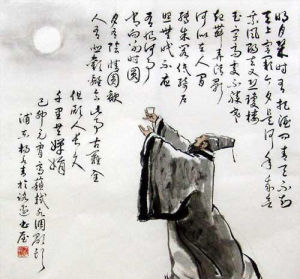 明月幾时有把酒问青天不知
天上宫阙今夕是何年我欲
乘風歸去又恐瓊樓
玉宇高處不勝寒
起舞弄清影
何似在人间
轉朱阁低绮户
照無眠不應
有恨何事長
向别时圆
月有陰晴圆缺
人有悲歡離合此事古難全
但願人長久
千里共嬋娟
己卯元宵寫蘇軾水调歌头